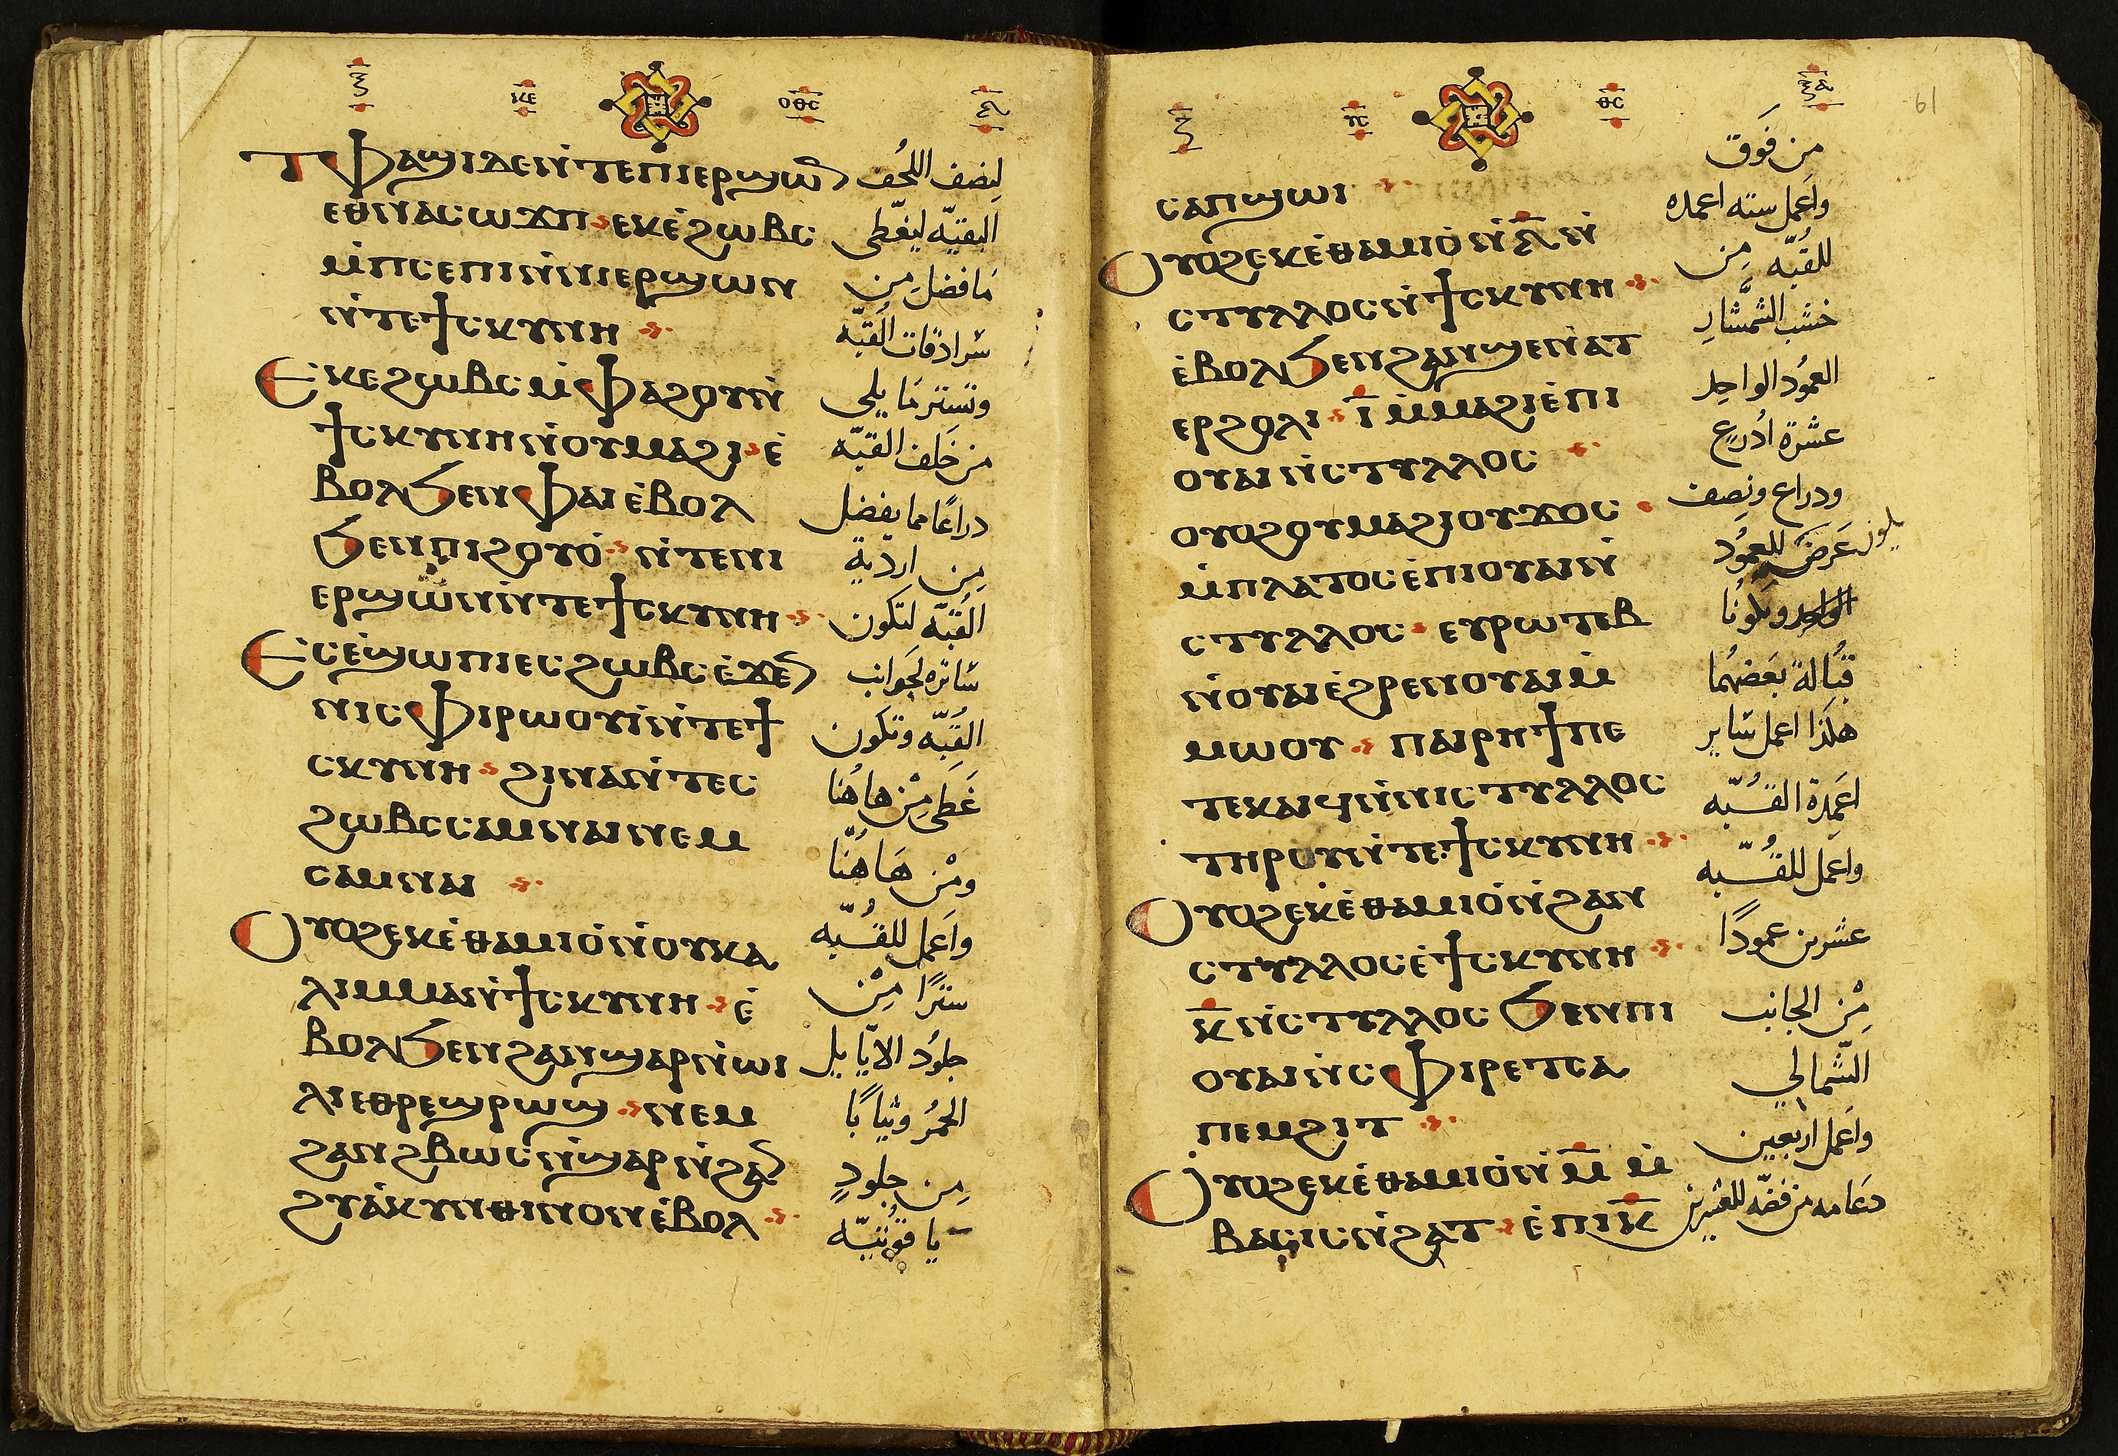 ⲕⲉ ⲟⲑⲥ
ⲧⲫⲁϣⲓⲇⲉⲛⲧⲉⲡⲓⲉⲣϣⲱⲛ
ⲉⲑⲛⲁⲥⲱϫⲡ ⲉⲕⲉ̀ϩⲱⲃⲥ
ⲙ̀ⲡⲥⲉⲡⲓⲛ̀ⲛⲓⲉⲣϣⲱⲛ
ⲛ̀ⲧⲉϯⲥⲕⲩⲛⲏ
ⲉⲕⲉϩⲱⲃⲥⲙ̀ⲫⲁϩⲟⲩⲛ̀
ϯⲥⲕⲩⲛⲏⲛ̀ⲟⲩⲙⲁϩⲓ ⲉ̀
ⲃⲟⲗϧⲉⲛⲫⲁⲓⲉ̀ⲃⲟⲗ
ϧⲉⲛⲡⲓϩⲟⲩⲟ̀ ⲛ̀ⲧⲉⲛⲓ
ⲉⲣϣⲱⲛⲛ̀ⲧⲉϯⲥⲕⲩⲛⲏ
ⲉⲥⲉ̀ϣⲱⲡⲓⲉⲥϩⲱⲃⲥⲉ̀ϫⲉⲛ
ⲛⲓⲥⲫⲓⲣⲱⲟⲩⲓ̀ⲛ̀ⲧⲉϯ
ⲥⲕⲩⲛⲏ ϩⲓⲛⲁⲛ̀ⲧⲉⲥ
ϩⲱⲃⲥⲥⲁⲙⲛⲁⲓⲛⲉⲙ
ⲥⲁⲙⲛⲁⲓ
ⲟⲩⲟϩⲉⲕⲉ̀ⲑⲁⲙⲓⲟ̀ⲛ̀ⲟⲩⲕⲁ
ⲗⲓⲙⲙⲁⲛ̀ϯⲥⲕⲩⲛⲏ ⲉ̀
ⲃⲟⲗϧⲉⲛϩⲁⲛϣⲁⲣⲛ̀ⲱⲓ
ⲗⲓⲉⲑⲣⲉϣⲣⲱϣ ⲛⲉⲙ
ϩⲁⲛϩⲃⲱⲥⲛ̀ϣⲁⲣⲛ̀ϩⲁⲛ
ϩⲩⲁ̀ⲕⲩⲛⲑⲓⲛⲟⲛⲉ̀ⲃⲟⲗ
لنصف اللحُف
البقيّه ليغّطى
مَا فضل مِن
سرادقات القبّه
وتستر مَا يلى
من خَلف القبّه
دراعًا مما يفضل
مِن اردية
القُبّه لتكون
ساتره لجَوانب
القُبّه وتكون
غَطى مِنْ هاهُنا
ومْن هَاهُنّا
واعَمل للقُبّه
سترًا مِنْ
جلوُد الايّايل
الحمُر وثيابًا
مِن جلودٍ
ياقوُنتيّه
ⲡ ⲑⲥ
61
ⲥⲁⲡϣⲱⲓ
ⲟⲩⲟϩⲉⲕⲉ̀ⲑⲁⲙⲓⲟ̀ⲛ̀ⲋ̅ⲛ̀
ⲥⲧⲩⲗⲗⲟⲥⲛ̀ϯⲥⲕⲩⲛⲏ
ⲉ̀ⲃⲟⲗϧⲉⲛϩⲁⲛϣⲉⲛ̀ⲁⲧ
ⲉⲣϩⲟⲗⲓ ⲓ̅ ⲙ̀ⲙⲁϩⲓⲉ̀ⲡⲓ
ⲟⲩⲁⲓⲛ̀ⲥⲧⲩⲗⲗⲟⲥ
ⲟⲩⲟϩⲟⲩⲙⲁϩⲓⲟⲩϫⲟⲥ
ⲙ̀ⲡⲗⲁⲧⲟⲥⲉ̀ⲡⲓⲟⲩⲁⲓⲛ̀
ⲥⲧⲩⲗⲗⲟⲥ ⲉⲩⲣⲱⲧⲉⲃ
ⲛ̀ⲟⲩⲁⲓⲉ̀ϩⲣⲉⲛⲟⲩⲁⲓⲙ̀
ⲙⲱⲟⲩ ⲡⲁⲓⲣⲏϯⲡⲉ
ⲧⲉⲕⲁⲓϥⲛ̀ⲛⲓⲥⲧⲩⲗⲗⲟⲥ
ⲧⲏⲣⲟⲩⲛ̀ⲧⲉϯⲥⲕⲩⲛⲏ
ⲟⲩⲟϩⲉⲕⲉ̀ⲑⲁⲙⲓⲟ̀ⲛ̀ϩⲁⲛ
ⲥⲧⲩⲗⲗⲟⲥⲉ̀ϯⲥⲕⲩⲛⲏ
ⲕ̅ⲛ̀ⲥⲧⲩⲗⲗⲟⲥϧⲉⲛⲡⲓ
ⲟⲩⲁⲓⲛ̀ⲥⲫⲓⲣⲉⲧⲥⲁ
ⲡⲉⲙϩⲓⲧ
ⲟⲩⲟϩⲉⲕⲉ̀ⲑⲁⲙⲓⲟ̀ⲛ̀ⲙ̅ ⲙ̀
ⲃⲁⲥⲓⲥⲛ̀ϩⲁⲧ ⲉ̀ⲡⲓⲕ̅
من فَوق
واعَمل سته اعمده
للقُبّه مِن
خشب الشمشّار
العموُد الواحِد
عشرة ادُرع
ودراع ونصف
عَرضَ للعموُد
قُبالة بَعضهُما
هكَذا اعمل سَاير
اعَمِدة القُبّه
واعَمل للقُبّه
عشرين عمودًا
مِنْ الجانب
الشّمالى
واعَمل اربَعين
دعَامه من فضّه للعشرين